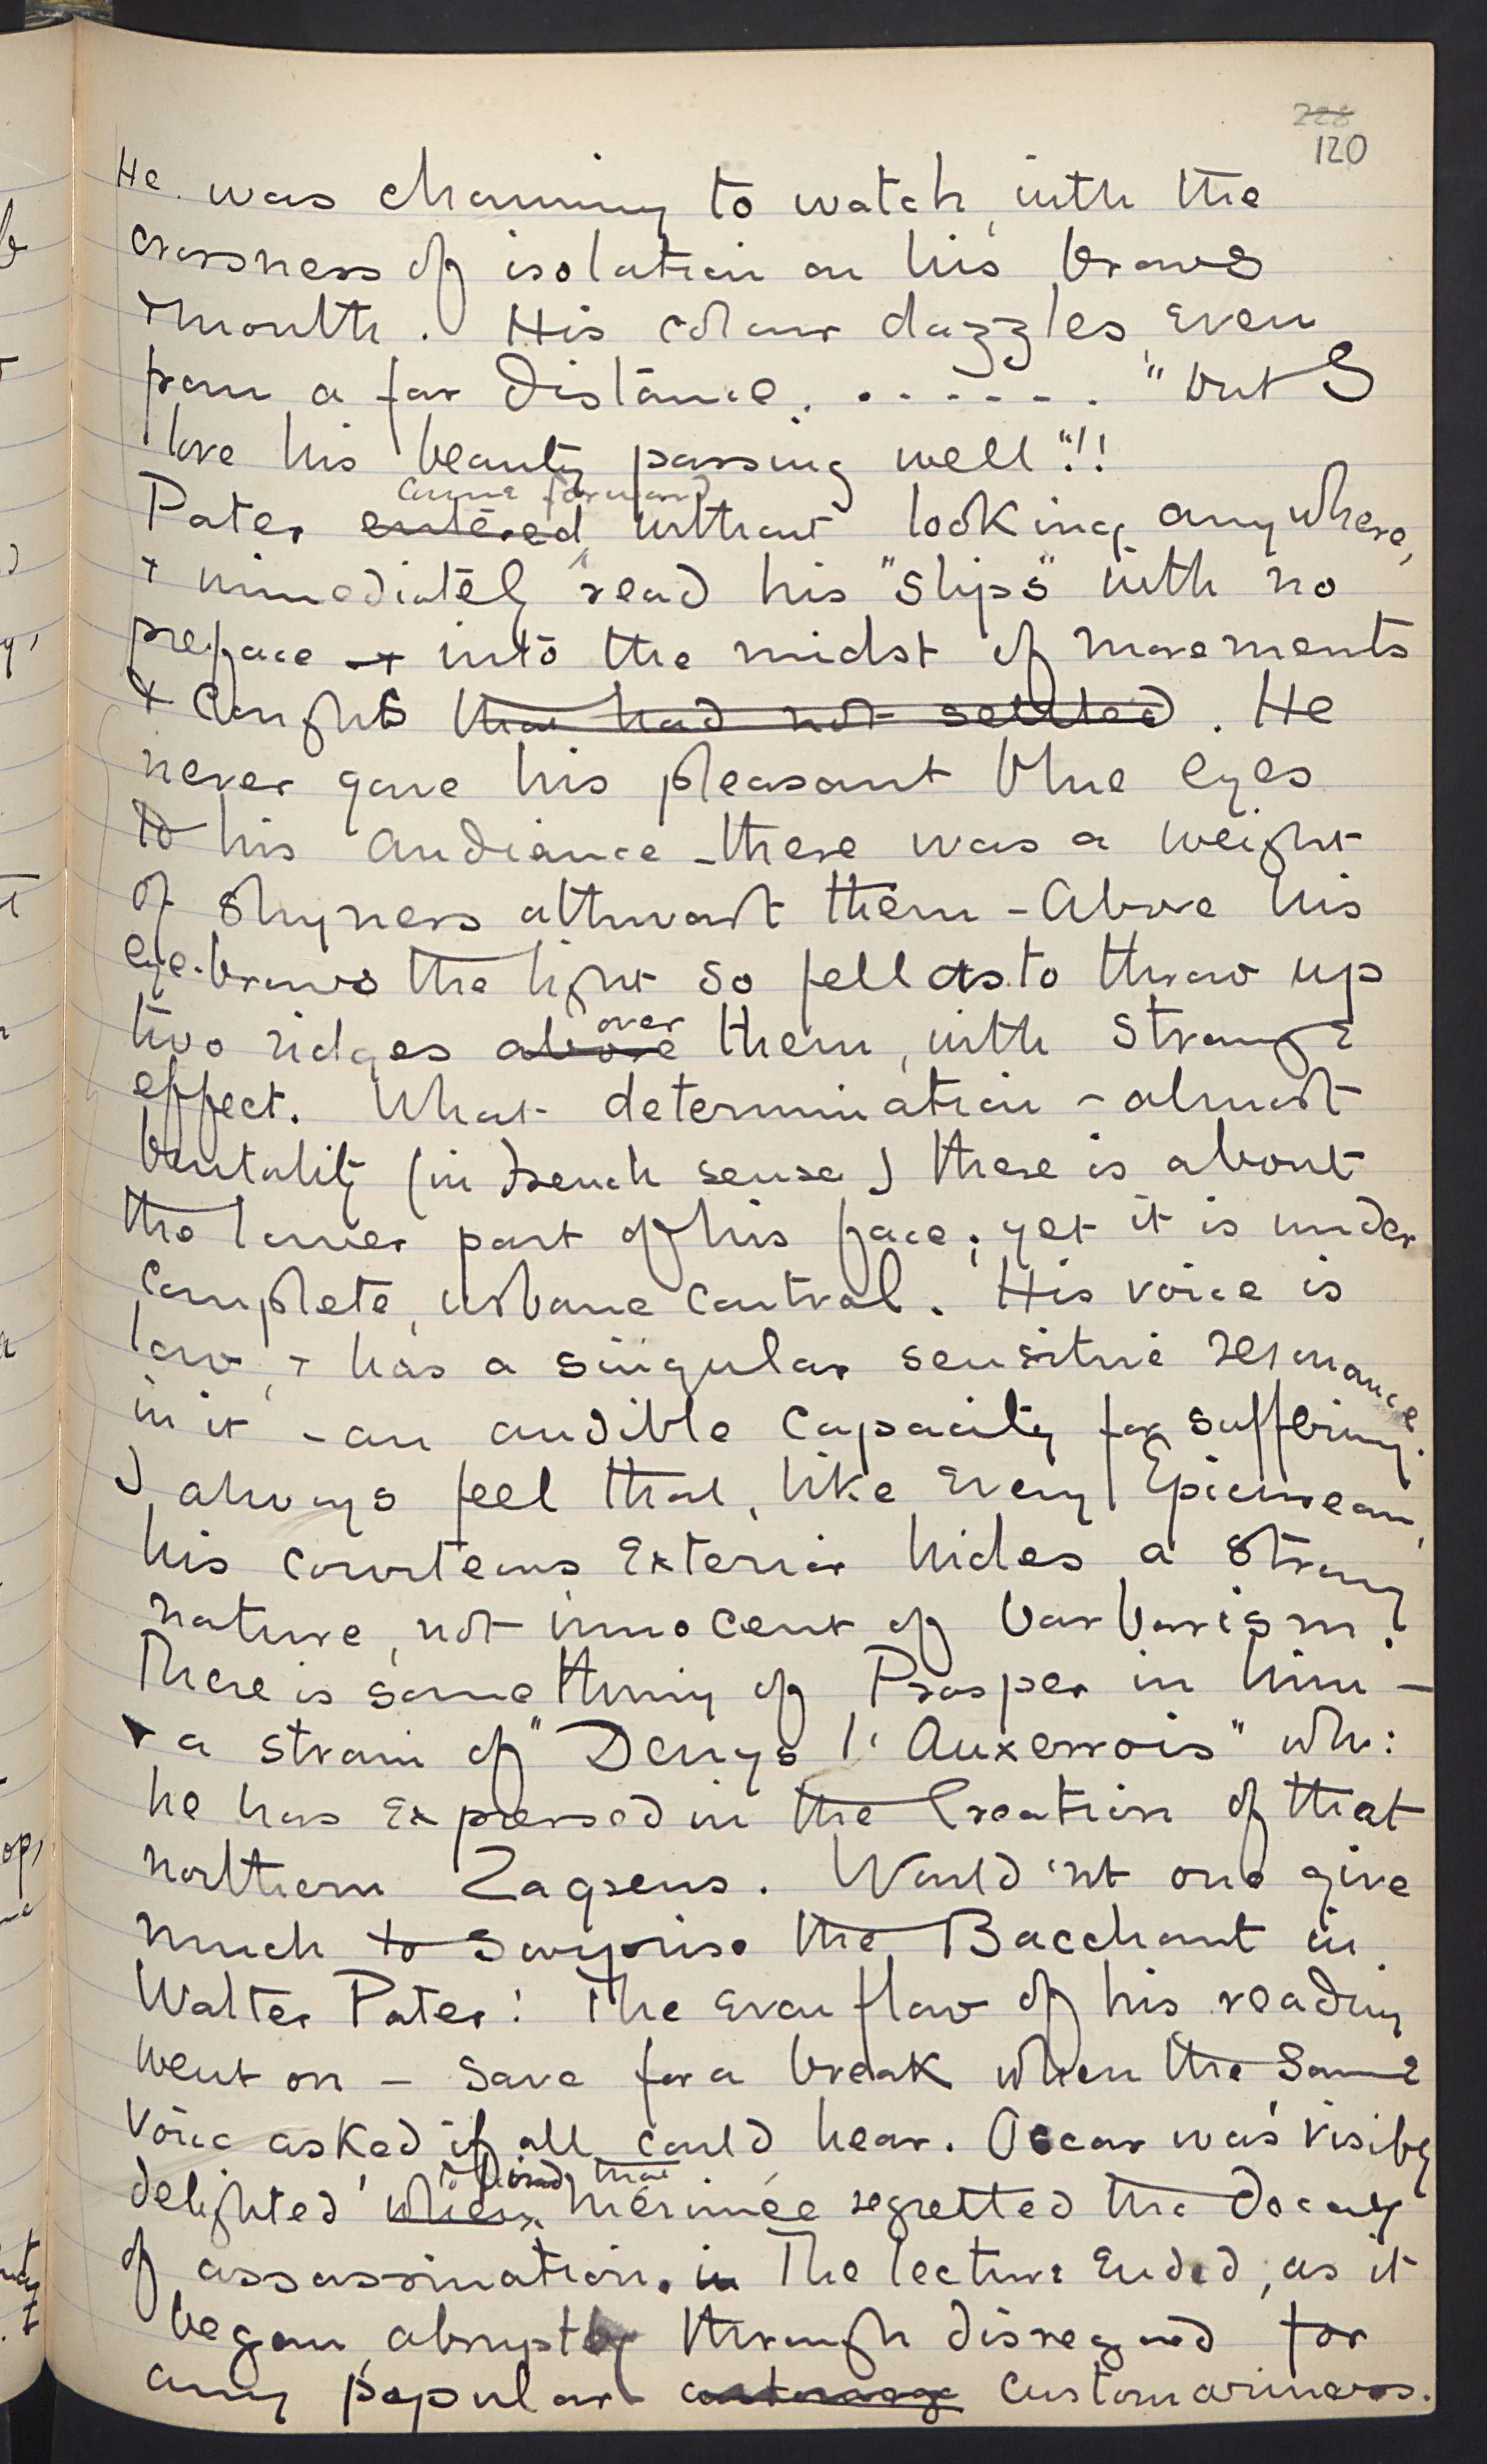 228
120
He was charming to watch, with the
crossness of isolation on his brows
+ mouth. His colour dazzles even
from a far distance. . . . . . . "but I
love his beauty passing well"!!
came forward
Pater entered, without looking anywhere,
+ immediately read his "slips" with no
preface → into the midst of movements
+ coughs that had not settled. He
never gave his pleasant blue eyes
to his audience – there was a weight
of shyness athwart them – Above his
eye-brows the light so fell as to throw up
over
two ridges above them, with strange
effect. What determination – almost
brutality (in French sense) there is about
the lower part of his face; yet it is under
complete, urbane control. His voice is
low, + has a singular sensitive resonance
in it – an audible capacity for suffering.
I always feel that, like every Epicurean,
his courteous exterior hides a strong
nature, not innocent of barbarism.
There is something of Prosper in him –
+ a strain of "Denys l'Auxerrois" wh:
he has expressed in the creation of that
northern Zagreus. Would'nt one give
much to surprise the Bacchant in
Walter Pater! The even flow of his reading
went on – save for a break when the same
voice asked if all could hear. Oscar was visibly
that
delighted when Mérimée regretted the decay
of assassination. in The lecture ended, as it
began, abruptly through disregard for
any popular customariness.